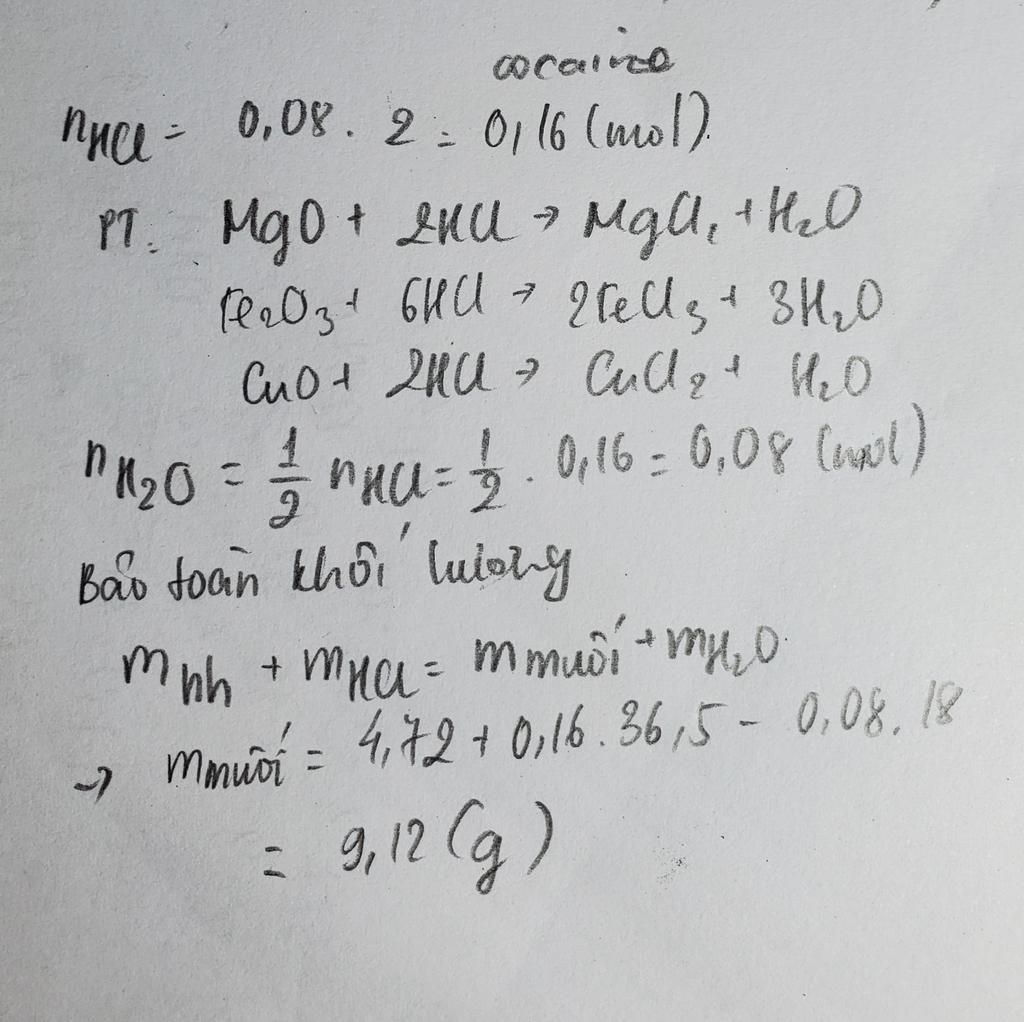 cocaine
nHCl = 0,08 . 2 = 0,16 (mol).
PT: MgO + 2HCl → MgCl₂ + H₂O
Fe₂O₃ + 6HCl → 2FeCl₃ + 3H₂O
CuO + 2HCl → CuCl₂ + H₂O
nH₂O = 1/2 nHCl = 1/2 . 0,16 = 0,08 (mol)
Bảo toàn khối lượng
mhh + mHCl = mmuối + mH₂O
→ mmuối = 4,72 + 0,16 . 36,5 - 0,08 . 18
= 9,12 (g)